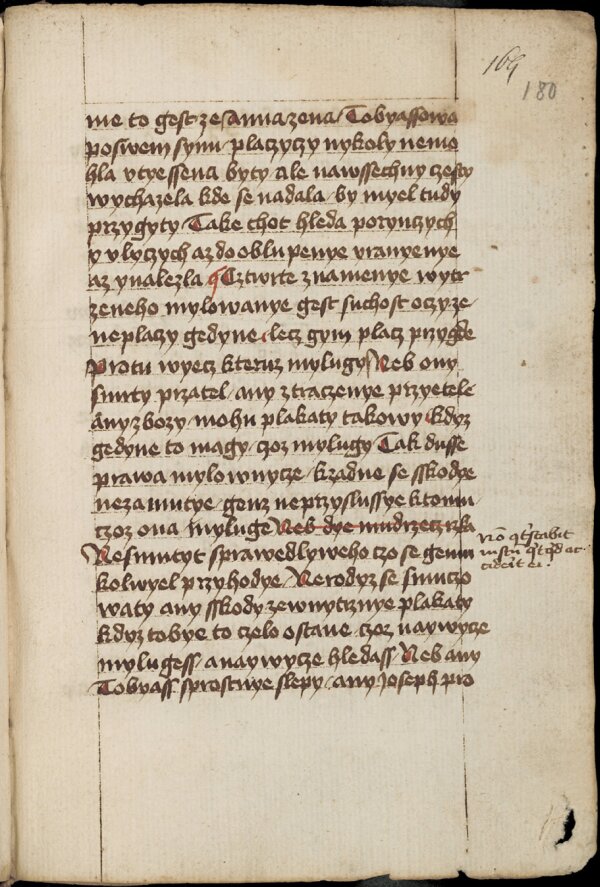 169
180
me to gest ze Anna zena Tobyassowa
po swem synu placzyczy nykoly nemo
hla vtyessena byty ale nawssechny czesty
wychazela kde se nadala by myel tudy
przygyty Take chot hleda po rynczych
y vlyczych az do oblupenye vranyenye
az y nalezla Cztwrte znamenye wytr
zeneho mylowanye gest suchost oczy ze
neplaczy gedyne lecz gym placz przygde
Protu wyecz kteruz mylugy Neb ony
smrty przatel any ztraczenye przyetele
any zbozy mohu plakaty takowy kdyz
gedyne to magy czoz mylugy Tak dusse
prawa mylownycze kzadne se sskodye
nezamutye genz neprzyslussye k tomu
czoz ona myluge Neb dye mudrzecz rzka
Nesmutyt sprawedlyweho czo se gemu
kolwyek przyhodye Nerodyz se smuczo
waty any sskody zewnytrznye plakaty
kdyz tobye to czelo ostane czoz naywycze
mylugess a naywycze hledass Neb any
Tobyass sprostnye slepy any Joseph pro